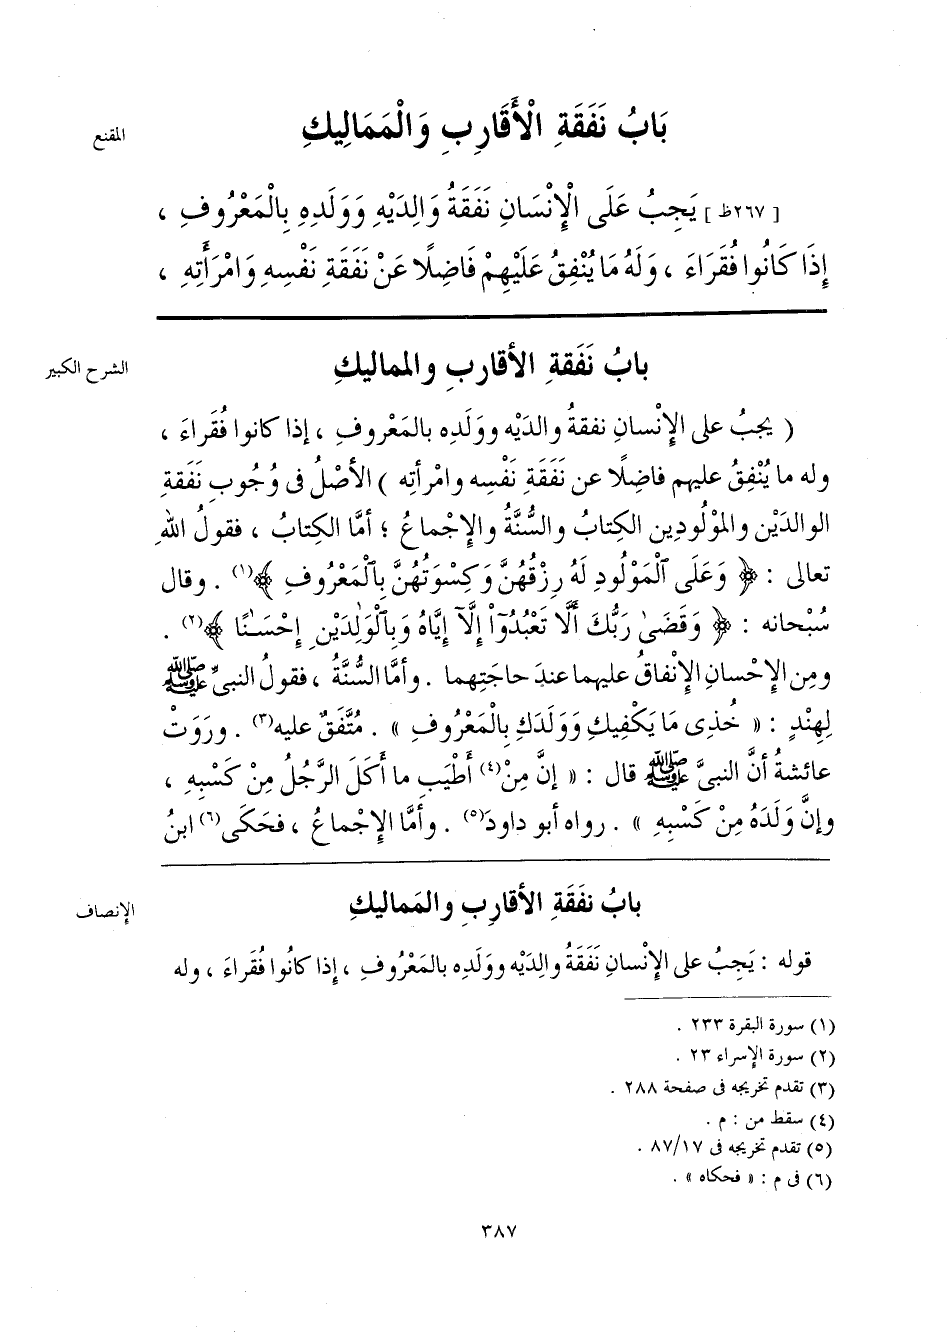 بَابُ نَفَقَةِ الْأَقَارِبِ وَالْمَمَالِيكِ
المقنع
[ ٢٦٧ظ ] يَجِبُ عَلَى الْإِنْسَانِ نَفَقَةُ وَالِدَيْهِ وَوَلَدِهِ بِالْمَعْرُوفِ ،
إِذَا كَانُوا فُقَرَاءَ ، وَلَهُ مَا يُنْفِقُ عَلَيْهِمْ فَاضِلًا عَنْ نَفَقَةِ نَفْسِهِ وَامْرَأَتِهِ ،
بابُ نَفَقةِ الأقاربِ والمماليكِ
الشرح الكبير
( يجبُ على الإِنْسانِ نفقةُ والدَيْه ووَلَدِه بالمَعْروفِ ، إذا كانوا فُقَراءَ ،
وله ما يُنْفِقُ عليهم فاضِلًا عن نَفَقَةِ نَفْسِه وامْرأتِه ) الأصْلُ فى وُجُوبِ نَفَقةِ
الوالدَيْن والموْلُودِين الكِتابُ والسُّنَّةُ والإِجْماعُ ؛ أمَّا الكِتابُ ، فقولُ اللهِ
تعالى : ﴿ وَعَلَى ٱلْمَوْلُودِ لَهُ رِزْقُهُنَّ وَكِسْوَتُهُنَّ بِٱلْمَعْرُوفِ ﴾(١) . وقال
سُبْحانه : ﴿ وَقَضَىٰ رَبُّكَ أَلَّا تَعْبُدُوٓاْ إِلَّآ إِيَّاهُ وَبِٱلْوَٰلِدَيْنِ إِحْسَٰنًا ﴾(٢) .
ومِن الإِحْسانِ الإِنْفاقُ عليهما عندَ حاجَتِهما . وأمَّا السُّنَّةُ ، فقولُ النبىِّ ﷺ
لِهِنْدٍ : « خُذِى مَا يَكْفِيكِ وَوَلَدَكِ بِالْمَعْرُوفِ » . مُتَّفَقٌ عليه(٣) . ورَوَتْ
عائشةُ أنَّ النبىَّ ﷺ قال : « إنَّ مِنْ(٤) أَطْيَبِ ما أَكَلَ الرَّجُلُ مِنْ كَسْبِهِ ،
وإنَّ وَلَدَهُ مِنْ كَسْبِهِ » . رواه أبو داودَ(٥) . وأمَّا الإِجْماعُ ، فحَكَى(٦) ابنُ
بابُ نفَقَةِ الأقارِبِ والمَماليكِ
الإنصاف
قوله : يَجِبُ على الإِنْسانِ نَفَقَةُ والِدَيْه ووَلَدِه بالمَعْرُوفِ ، إذا كانُوا فُقَراءَ ، وله
(١) سورة البقرة ٢٣٣ .
(٢) سورة الإسراء ٢٣ .
(٣) تقدم تخريجه فى صفحة ٢٨٨ .
(٤) سقط من : م .
(٥) تقدم تخريجه فى ٨٧/١٧ .
(٦) فى م : « فحكاه » .
٣٨٧